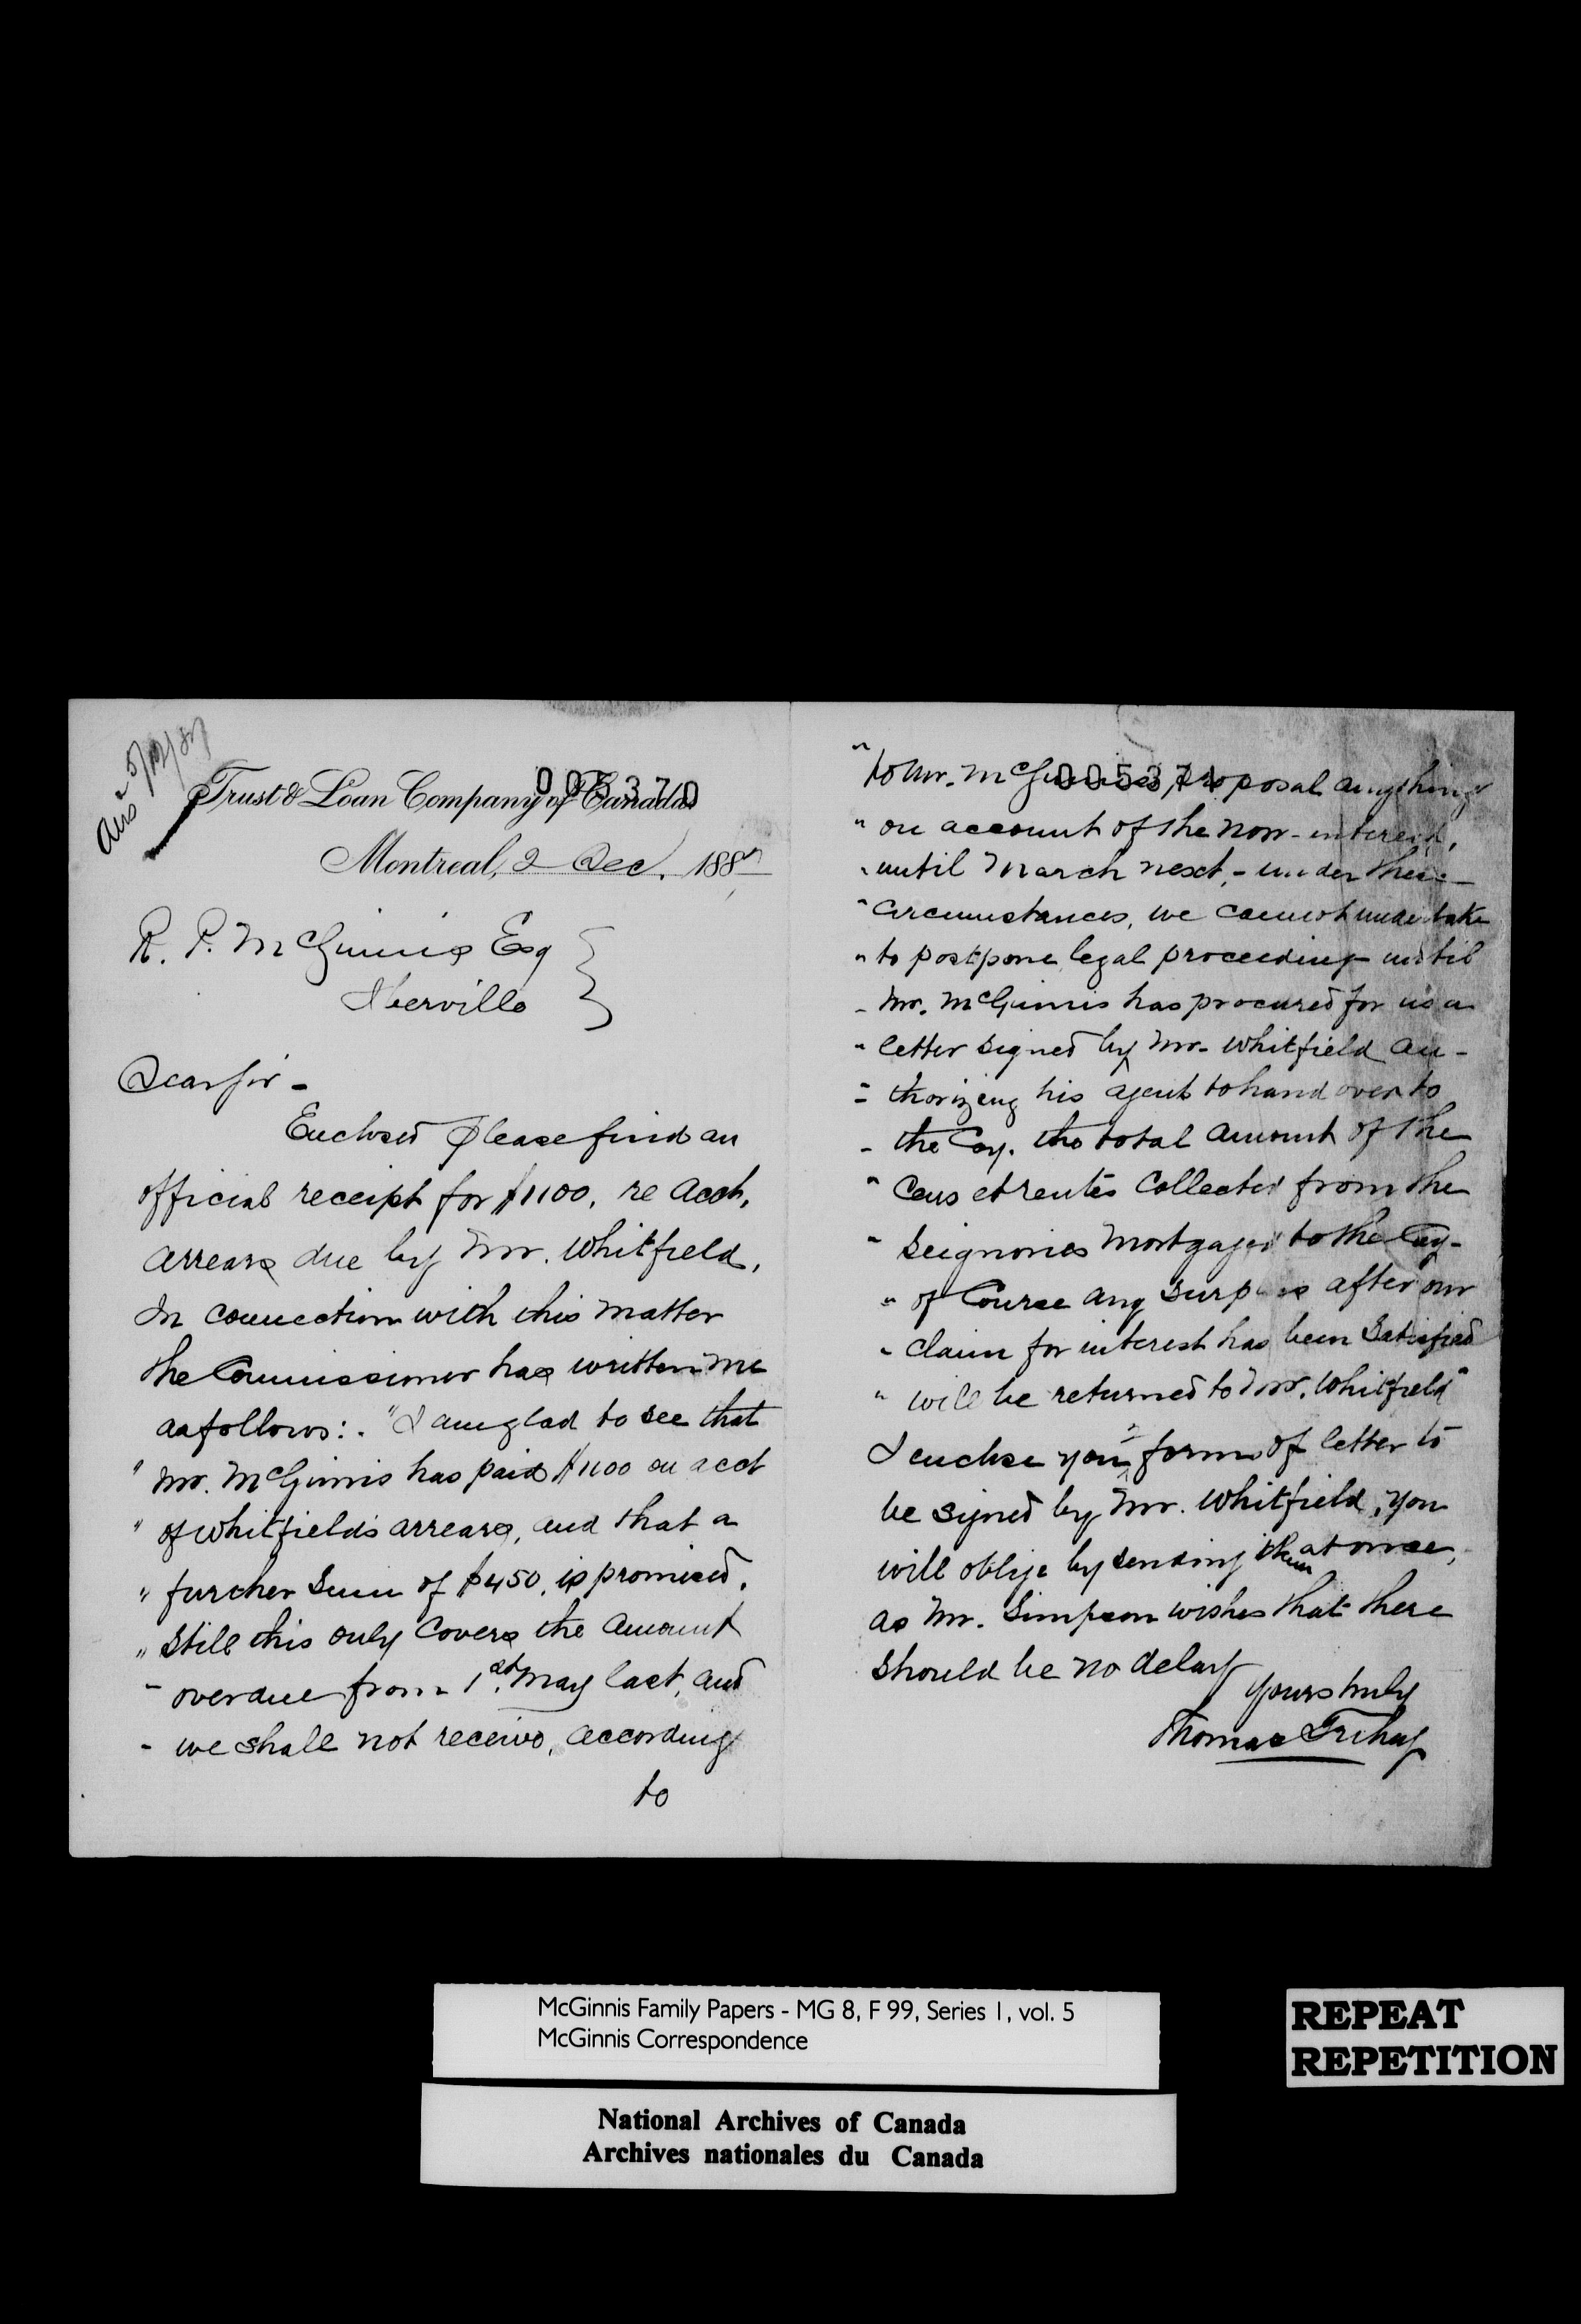 Ansd 5/12/87
005370
Trust & Loan Company of Canada
Montreal, 2 Dec. 1887
R. P. McGinnis Esq
Iberville
Dear Sir -
Enclosed please find an
official receipt for $1100, re Acct,
arrears due by Mr. Whitfield,
In connection with this matter
the Commissioner has written me
as follows: "I am glad to see that
" Mr. McGinnis has paid $1100 on acct
" of Whitfield's arrears, and that a
" further sum of $450, is promised.
" Still this only covers the amount
" overdue from 1st May last, and
" we shall not receive, according
to
005371
" to Mr. McGinnis' proposal anything
" on account of the Nov - interest,
" until March next, - under these
" circumstances, we cannot undertake
" to postpone legal proceedings until
" Mr. McGinnis has procured for us a
" letter signed by Mr. Whitfield au-
" thorizing his agent to hand over to
" the Coy. the total amount of the
" Cens et rentes collected from the
" Seignories mortgaged to the Coy -
" of course any surplus after our
" claim for interest has been satisfied
" will be returned to Mr. Whitfield"
I enclose you 2 forms of letter to
be signed by Mr. Whitfield, you
will oblige by sending them at once,
as Mr. Simpson wishes that there
should be no delay
Yours truly
Thomas Trihey
McGinnis Family Papers - MG 8, F 99, Series 1, vol. 5
McGinnis Correspondence
National Archives of Canada
Archives nationales du Canada
REPEAT
REPETITION